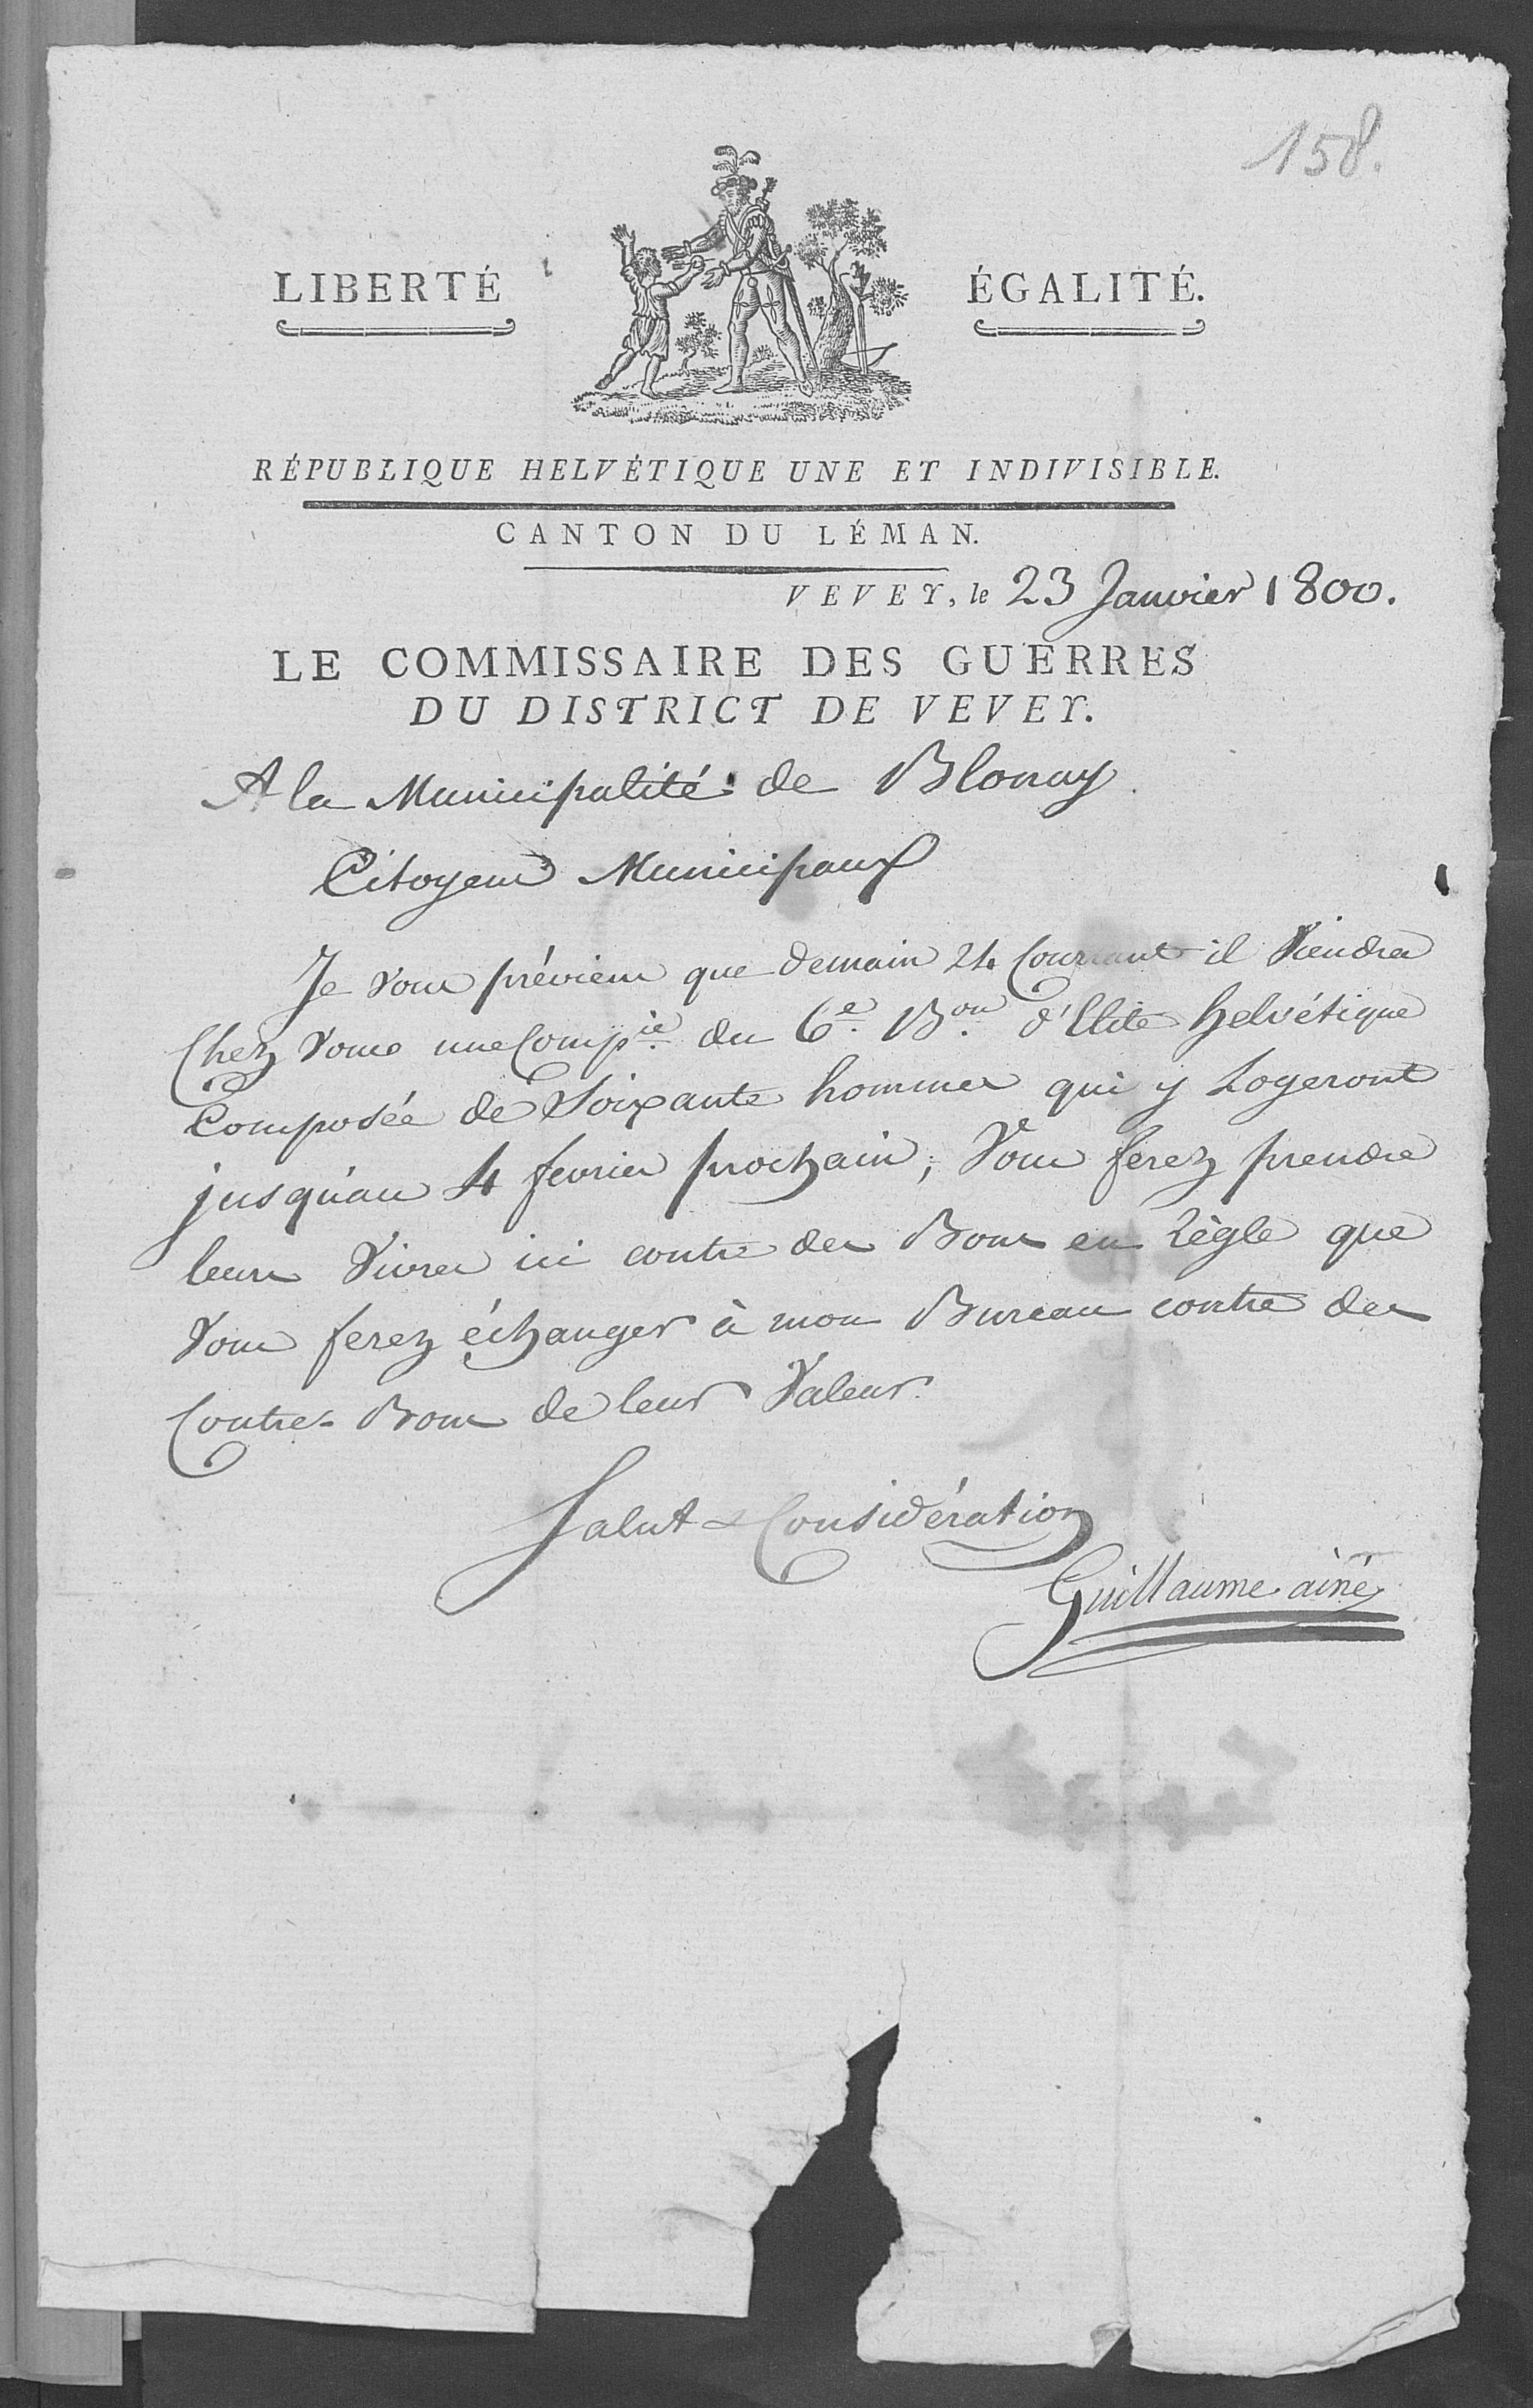 158.
LIBERTÉ ÉGALITÉ.
RÉPUBLIQUE HELVÉTIQUE UNE ET INDIVISIBLE.
CANTON DU LÉMAN.
VEVEY, le 23 Janvier 1800.
LE COMMISSAIRE DES GUERRES
DU DISTRICT DE VEVEY.
A la Municipalité de Blonay
Citoyens Municipaux
Je vous préviens que demain 24 Courrant il Viendra
Chez Vous une Compie. du 6e. Bon. d'Elite helvétique
Composée de Soixante hommes qui y Logeront
jusqu'au 4 fevrier prochain; Vous ferez prendre
leurs Vivres ici contre des Bons en Règle que
Vous ferez échanger à mon Bureau contre des
Contre-Bons de leur Valeur.
Salut & Considération
Guillaume ainé